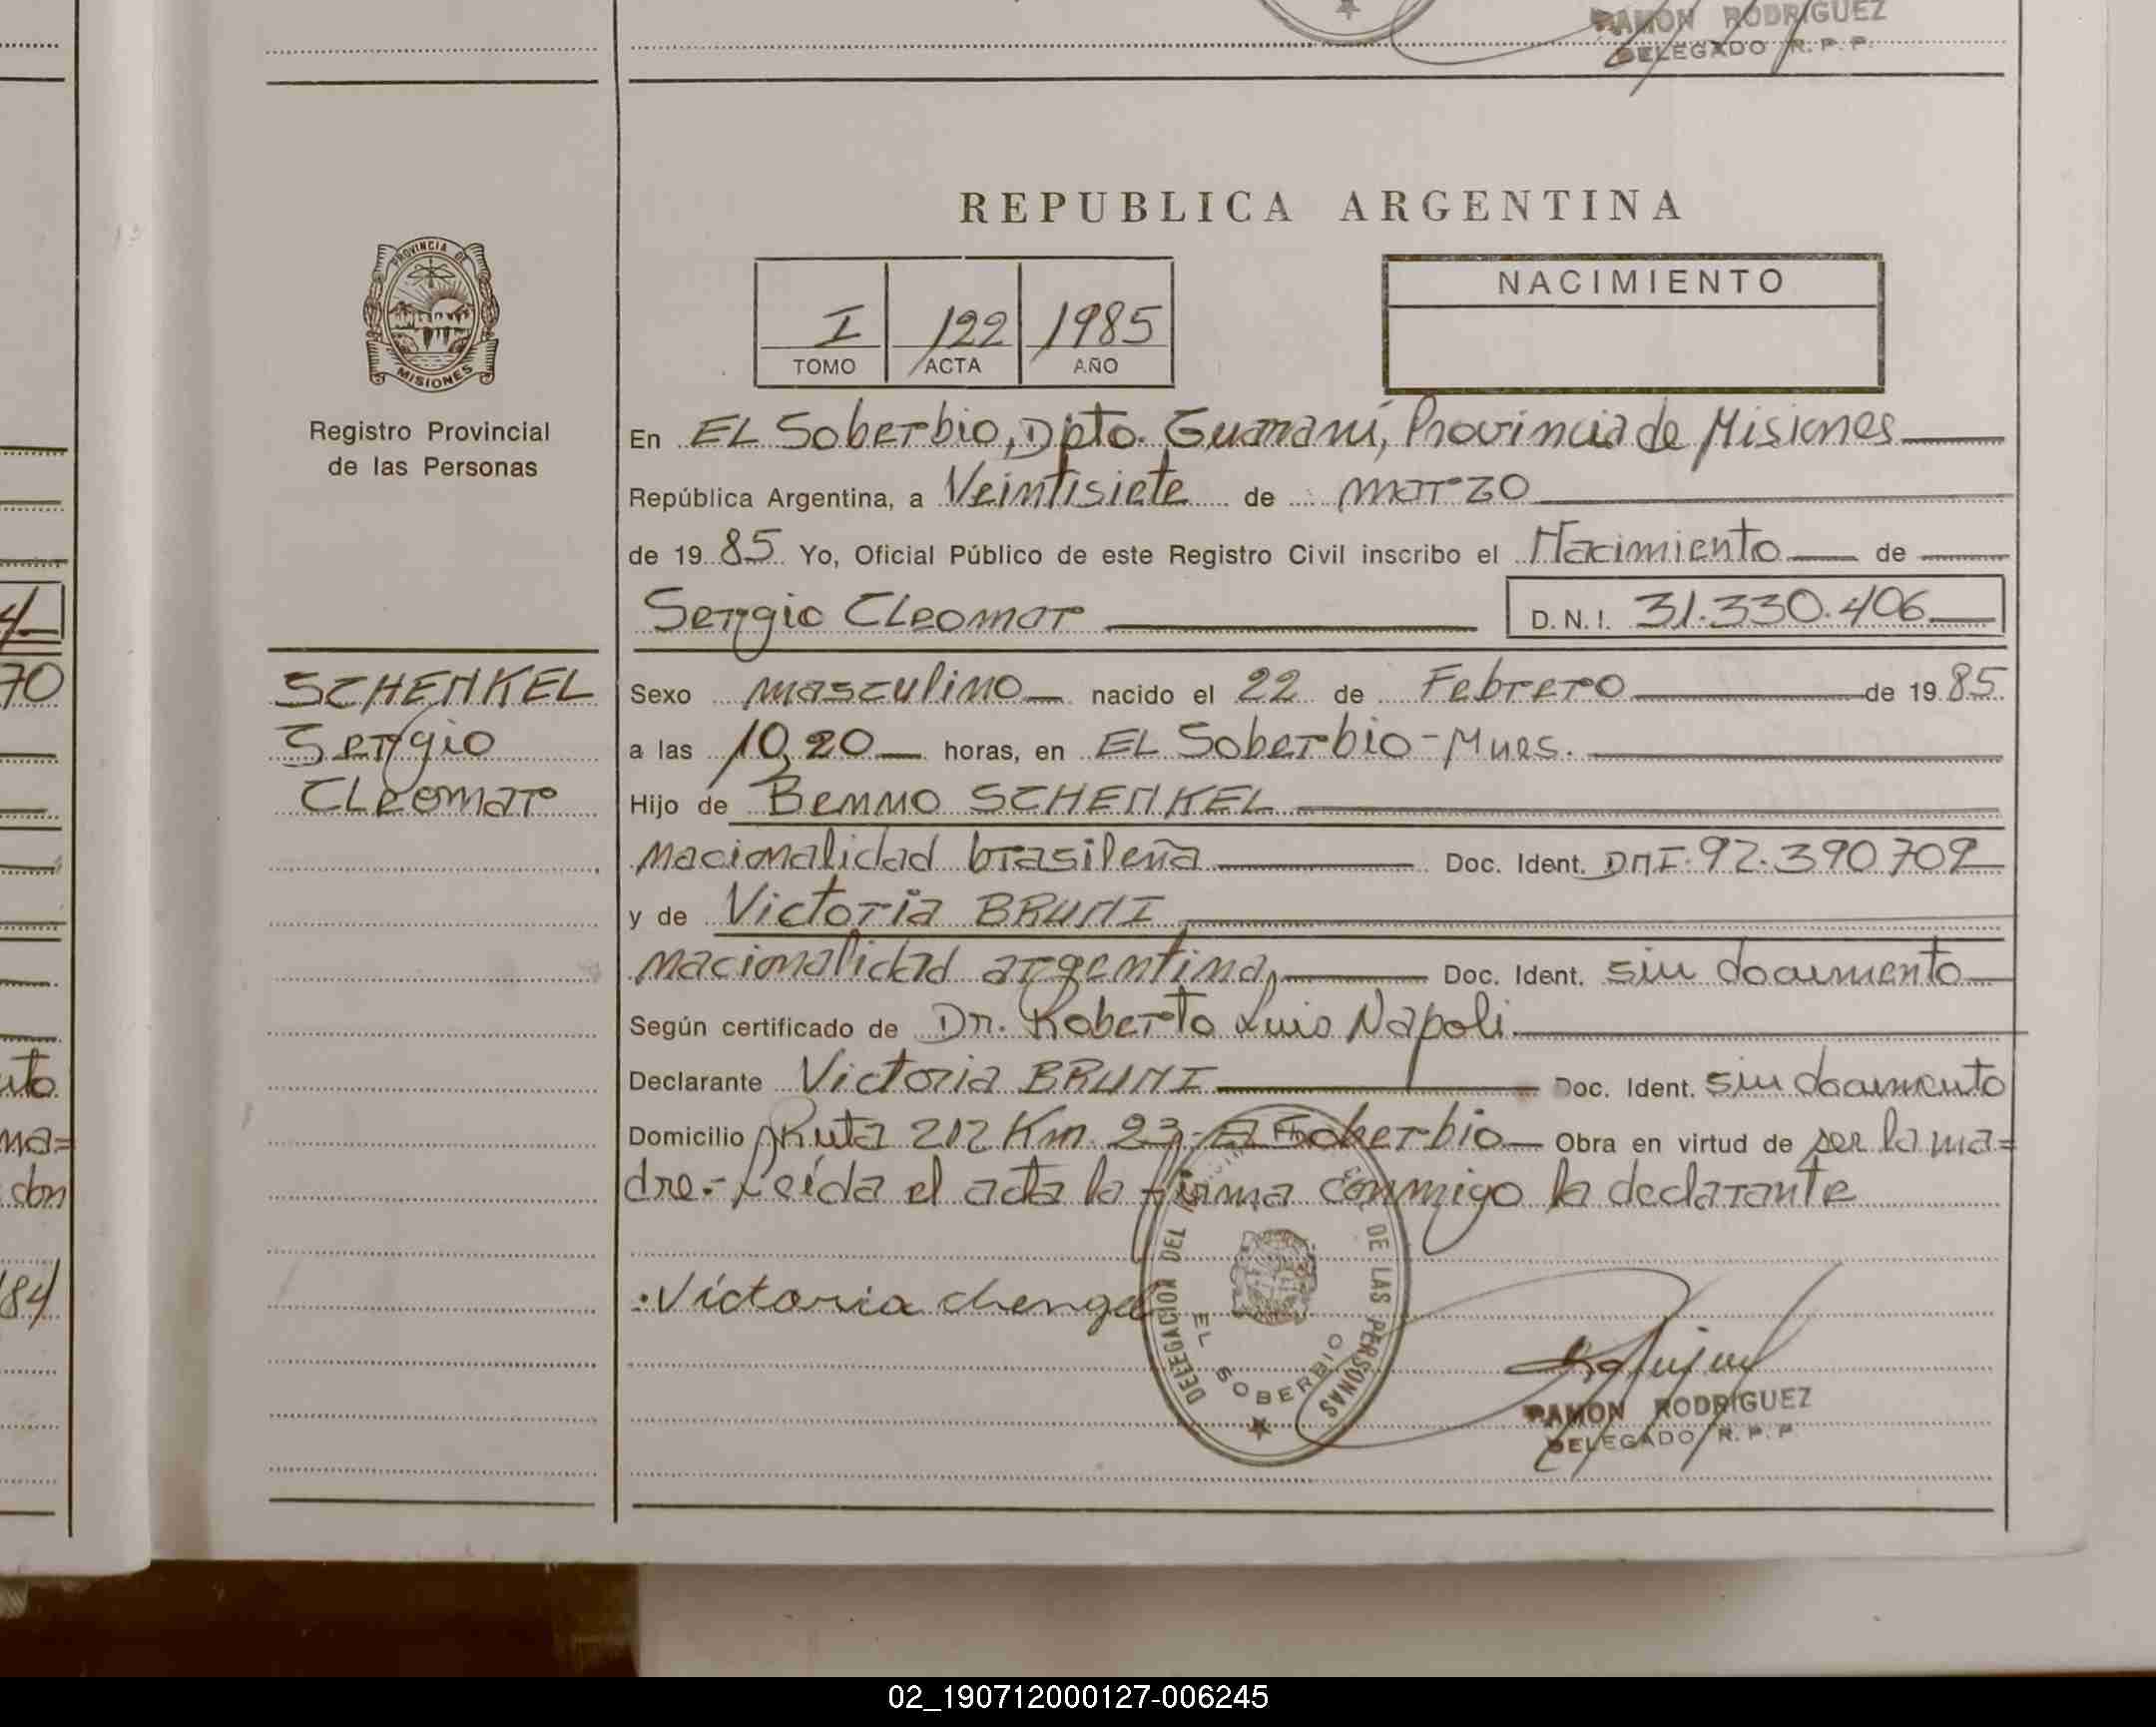 RAMON RODRIGUEZ
DELEGADO R. P. P.
REPUBLICA ARGENTINA
PROVINCIA DE
MISIONES
Registro Provincial
de las Personas
I 122 1985
TOMO ACTA AÑO
NACIMIENTO
En EL Soberbio, Dpto. Guaraní, Provincia de Misiones
República Argentina, a Veintisiete de marzo
de 1985 Yo, Oficial Público de este Registro Civil inscribo el Nacimiento de
Sergio Cleomar D.N.I. 31.330.406
SCHENKEL
Sergio
Cleomar
Sexo masculino nacido el 22 de Febrero de 1985
a las 10,20 horas, en EL Soberbio-Mnes.
Hijo de Benno SCHENKEL
nacionalidad brasileña Doc. Ident. DNI. 92.390.709
y de Victoria BRUNI
nacionalidad argentina, Doc. Ident. sin documento
Según certificado de Dr. Roberto Luis Napoli
Declarante Victoria BRUNI Doc. Ident. sin documento
Domicilio Ruta 212 Km. 23-El Soberbio Obra en virtud de ser la ma=
dre.- Leída el acta la firma conmigo la declarante
Victoria chengel
DELEGACION DEL DE LAS PERSONAS
EL SOBERBIO
RAMON RODRIGUEZ
DELEGADO R. P. P.
4
70
uto
ma=
don
84
02_190712000127-006245